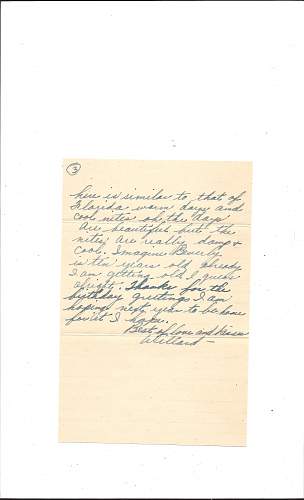 3
here is similar to that of
Florida warm days and
cool nites oh the days
are beautiful but the
nites are really damp &
cool. Imagine Beverly
is ten years old already
I am getting old I guess
alright. Thanks for the
birthday greetings I am
hoping next year to be home
for it I hope.
Best of love and kisses
Willard -